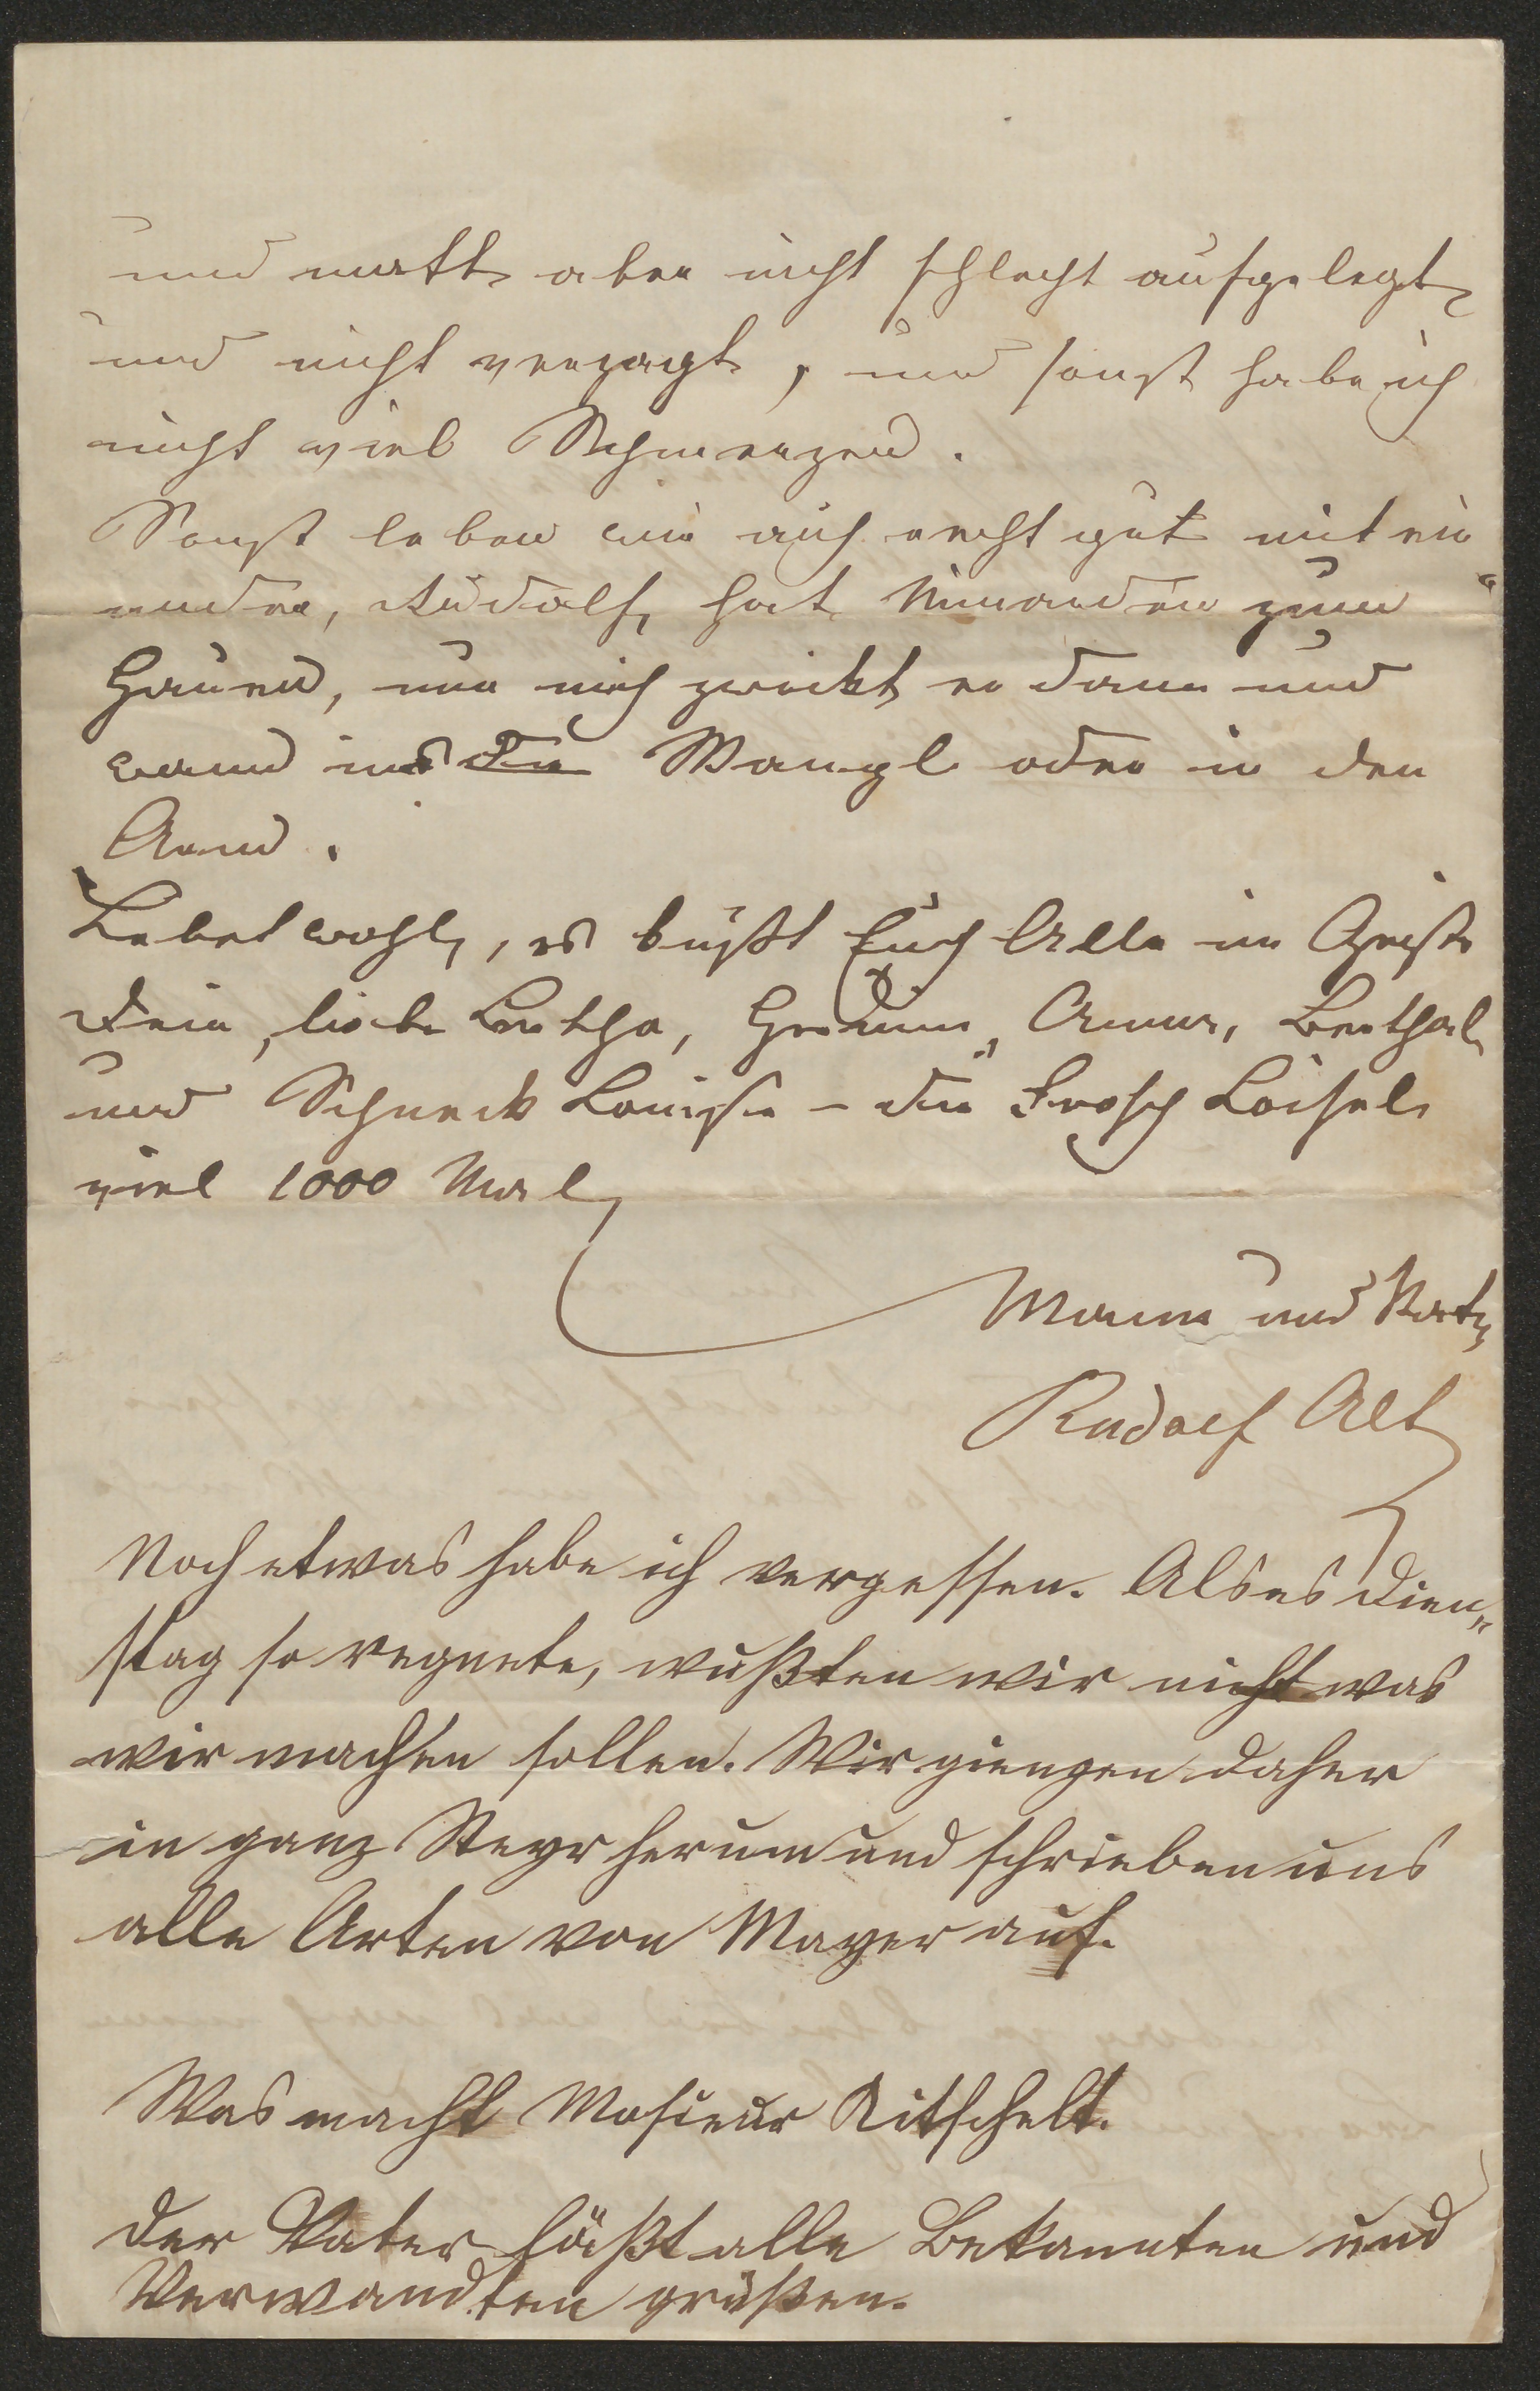 und matt aber nicht schlecht aufgelegt
und nicht verzagt, und sonst habe ich
nicht viel Schmerzen.
Sonst leben wir auch recht gut mit ein„
ander, Rudolf hat Niemanden zum
Hauen, nur mich zwickt er dann und
wann ins Wangl oder in den
Arm.
Lebet wohl, es küßt Euch Alle im Geiste
Dein, liebe Bertha, Anna, Berthal
und Schneck Louise – die Frosch Loisel
viel 1000 Mal
Mann und
Rudolf Alt
Noch etwas habe ich vergessen. Als es Dien„
stag so regnete, wußten wir nicht was
wir machen sollen. Wir giengen daher
in ganz Steyr herum und schrieben uns
alle Arten von Mayer auf.
Was macht Mosieur Ritschelt.
Der Vater läßt alle Bekannten und
Verwandten grüßen.